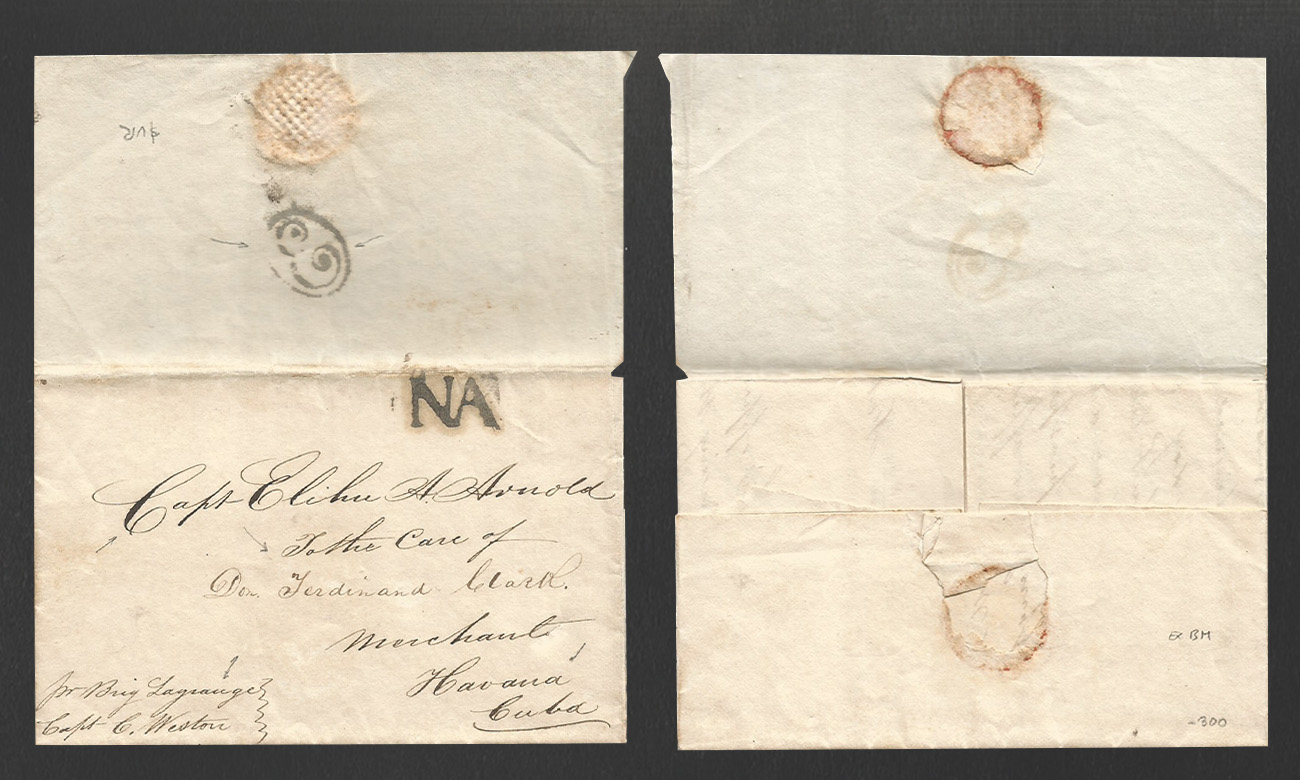 NA
Capt Elihu A. Arnold
To the Care of
Don. Ferdinand Clark.
Merchant
Havana
Cuba
pr Brig Lagrange
Capt C. Weston
Ex BM
-300